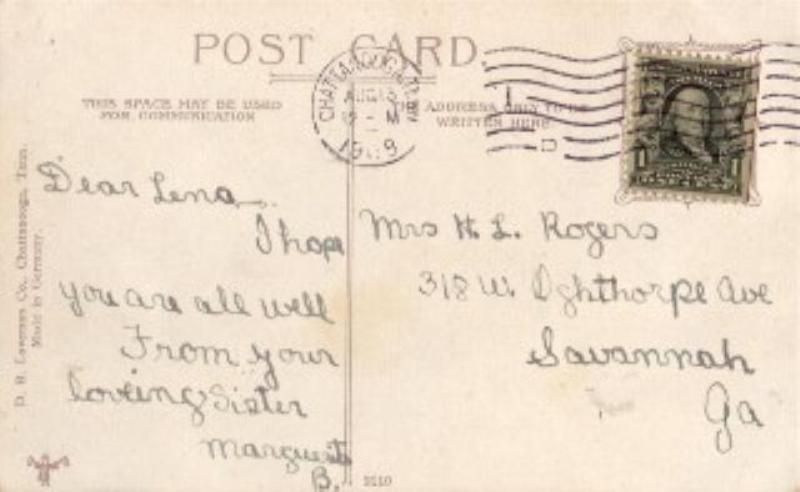 POST CARD
THIS SPACE MAY BE USED
FOR COMMUNICATION
THE ADDRESS ONLY TO BE
WRITTEN HERE
CHATTANOOGA, TENN.
AUG
M
1909
1
D
Dear Lena
I hope
you are all well
From your
loveing Sister
Marguerite
B.
Mrs H. L. Rogers
318 W. Oghthorpe Ave
Savannah
Ga
Co., Chattanooga, Tenn.
Made in Germany.